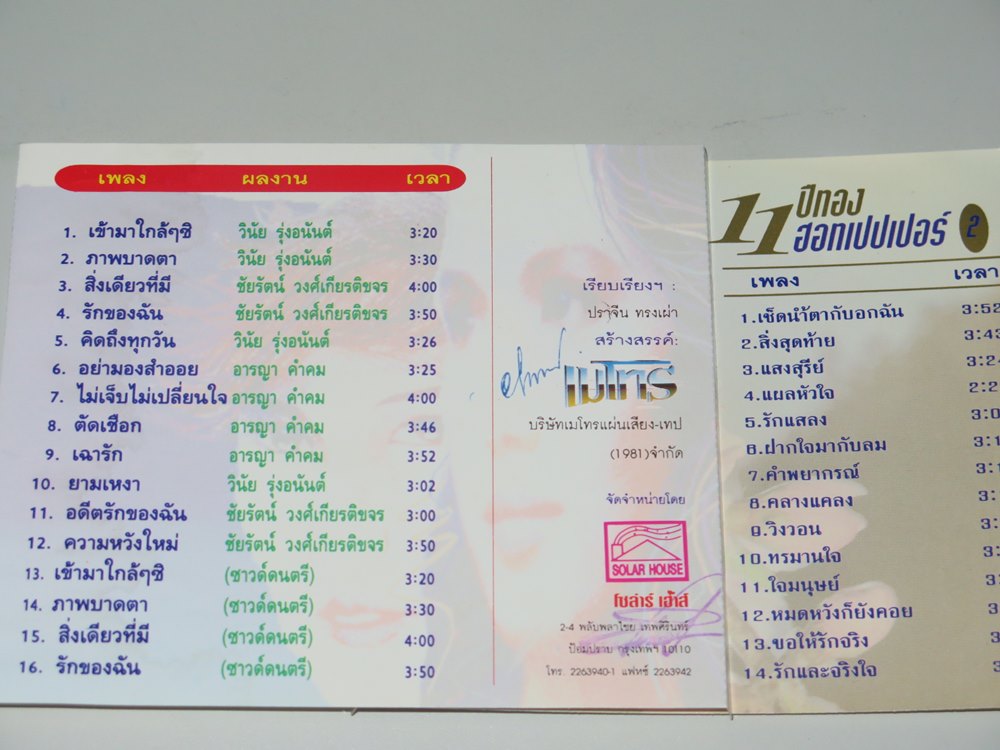 เพลง ผลงาน เวลา
1. เข้ามาใกล้ๆซิ วินัย รุ่งอนันต์ 3:20
2. ภาพบาดตา วินัย รุ่งอนันต์ 3:30
3. สิ่งเดียวที่มี ชัยรัตน์ วงศ์เกียรติขจร 4:00
4. รักของฉัน ชัยรัตน์ วงศ์เกียรติขจร 3:50
5. คิดถึงทุกวัน วินัย รุ่งอนันต์ 3:26
6. อย่ามองสำออย อารญา คำคม 3:25
7. ไม่เจ็บไม่เปลี่ยนใจ อารญา คำคม 4:00
8. ตัดเชือก อารญา คำคม 3:46
9. เฉารัก อารญา คำคม 3:52
10. ยามเหงา วินัย รุ่งอนันต์ 3:02
11. อดีตรักของฉัน ชัยรัตน์ วงศ์เกียรติขจร 3:00
12. ความหวังใหม่ ชัยรัตน์ วงศ์เกียรติขจร 3:50
13. เข้ามาใกล้ๆซิ (ซาวด์ดนตรี) 3:20
14. ภาพบาดตา (ซาวด์ดนตรี) 3:30
15. สิ่งเดียวที่มี (ซาวด์ดนตรี) 4:00
16. รักของฉัน (ซาวด์ดนตรี) 3:50
เรียบเรียงฯ :
ปราจีน ทรงเผ่า
สร้างสรรค์:
เมโทร
บริษัทเมโทรแผ่นเสียง-เทป
(1981)จำกัด
จัดจำหน่ายโดย
SOLAR HOUSE
โซล่าร์ เฮ้าส์
2-4 พลับพลาไชย เทพศิรินทร์
ป้อมปราบ กรุงเทพฯ 10110
โทร. 2263940-1 แฟกซ์ 2263942
11 ปีทอง
ฮอทเปปเปอร์ 2
เพลง เวลา
1.เช็ดน้ำตากับอกฉัน 3:52
2.สิ่งสุดท้าย 3:43
3.แสงสุรีย์
4.แผลหัวใจ
5.รักแสลง
6.ฝากใจมากับลม
7.คำพยากรณ์
8.คลางแคลง
9.วิงวอน
10.ทรมานใจ
11.ใจมนุษย์
12.หมดหวังก็ยังคอย
13.ขอให้รักจริง
14.รักและจริงใจ